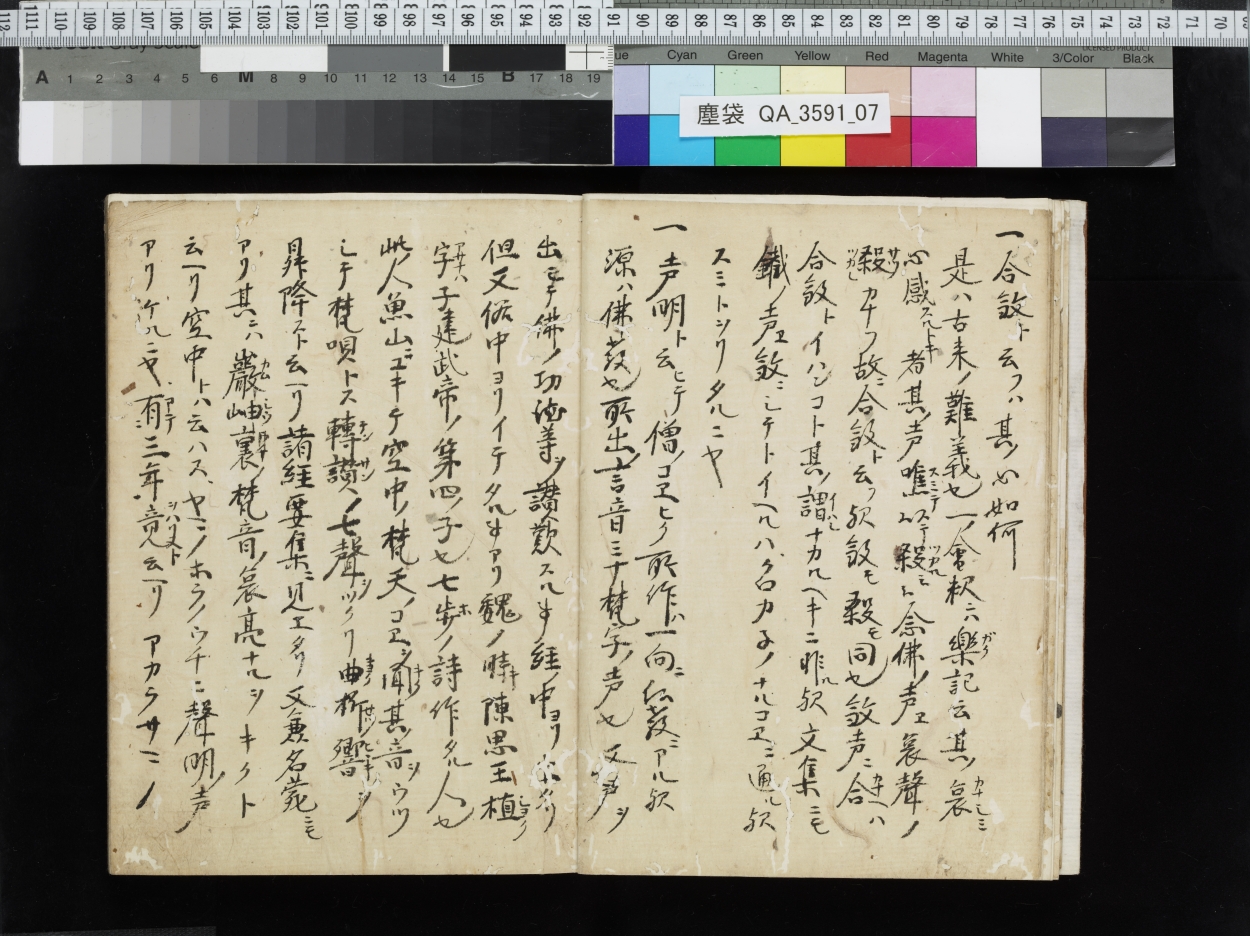 一合殺ト云フハ其ノ心如何
是ハ古来ノ難義也一ノ會釈云樂記云其ノ哀
心感スルトキ者其ノ声噍以殺ミ 念佛ノ声ヲ哀聲ノ
殺カナフ故ニ合殺ト云フ歟 殺モ同也 声ニ合ハ
合殺トイハンコト其ノ謂ナカルヘキニ非ル歟文集ニモ
鐵ノ声ヲ ニシテトイヘルハ ナルコヱニ通ル歟
スミトシリタルニヤ
一声明ト云ヒテ僧ノコヱヒク所作ハ一向ニ仏教ニアル歟
源ハ佛教也所出ノ言音ミナ梵字ノ声也又声ヲ
出シテ佛ノ功徳等ヲ讃歎スル事経ノ中ヨリ出タリ
但又俗中ヨリイテタル事アリ魏ノ時陳思王植
字ハ子建武帝ノ第四ノ子也七歩ノ詩作タル人也
此人魚山ニユキテ空中ノ梵天ノコヱヲ聞其ノ音ヲウツ
シテ梵唄トス轉讃ノ七聲ヲツクリ曲折響ヲ
昇降スト云ヘリ諸経要集ニ見エタリ又兼名苑ニモ
アリ其ニハ巌岫裏ノ梵音ノ哀亮ナルヲキクト
云ヘリ空中トハ云ハスヤマノホラノウチニ聲明ノ声
アリケルニヤ有三年竟云ヘリアカラサマニノ
塵袋 QA_3591_07
Cyan Green Yellow Red Magenta White 3/Color Black
A 1 2 3 4 5 6 M 8 9 10 11 12 13 14 15 B 17 18 19